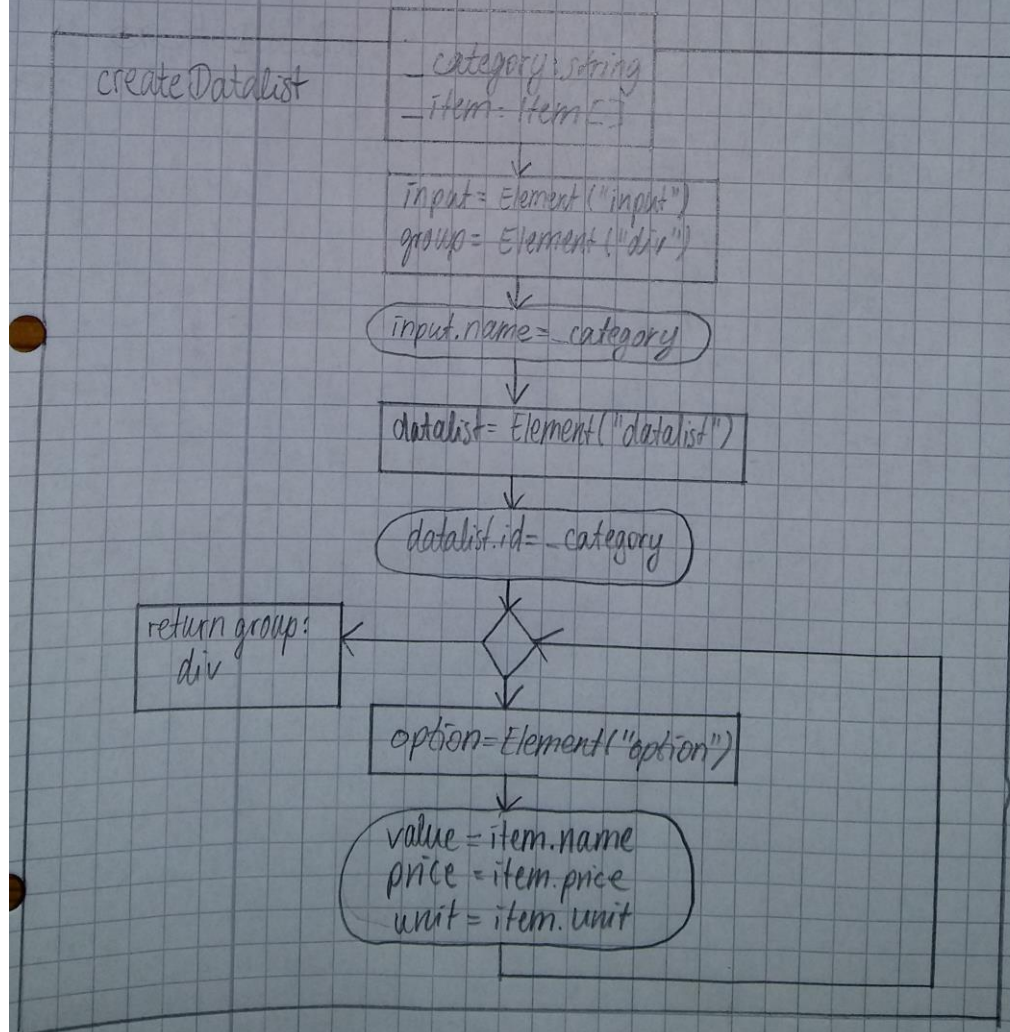 createDatalist
_category: string
_item: Item[]
input= Element("input")
group= Element("div")
input.name=_category
datalist= Element("datalist")
datalist.id=_category
return group:
div
option=Element("option")
value = item.name
price = item.price
unit = item.unit